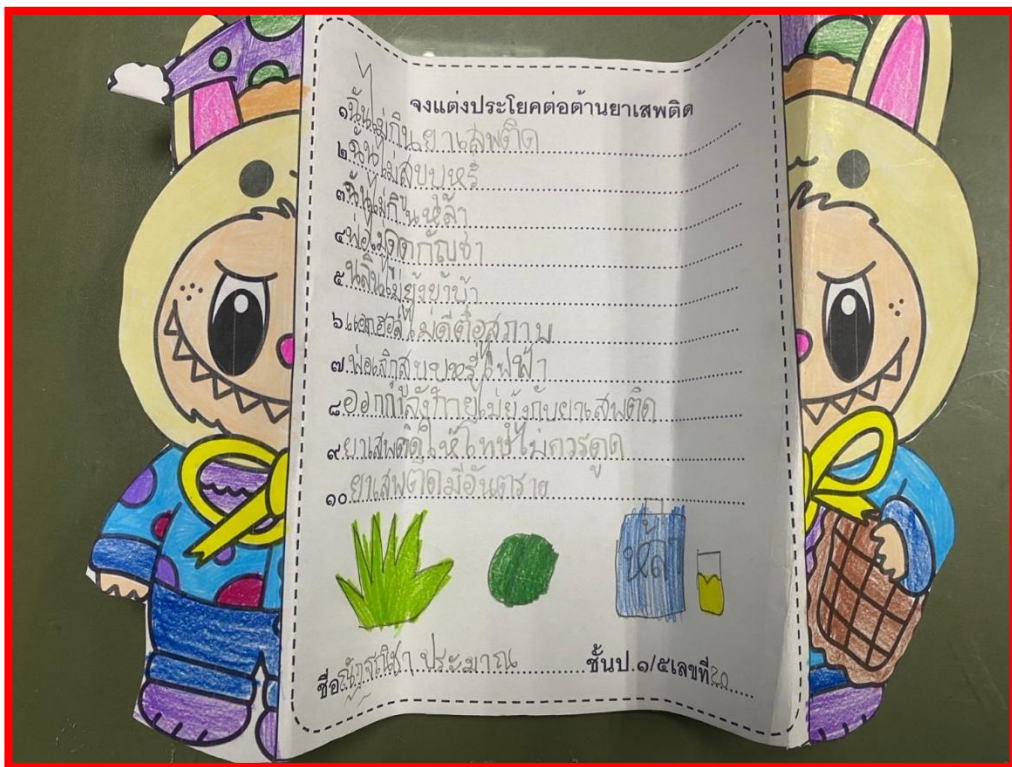 จงแต่งประโยคต่อต้านยาเสพติด
๑.ฉันไม่กินยาเสพติด
๒.ฉันไม่สูบบุหรี่
๓.ฉันไม่กินหล้า
๔.พ่อไม่ดูดกัญชา
๕.ไม่ยุ้งย้าบ้า
๖.ไม่ดีต่อสุภาบ
๗.พ่อเลิกสูบบุหรี่ไฟฟ้า
๘.ออกกำลังกายไม่ยุ้งกับยาเสพติด
๙.ยาเสพติดให้โทษไม่ควรดูด
๑๐.ยาเสพติดมีอันตราย
หล้า
ชื่อ ประมาณ ชั้นป.๑/๕เลขที่๒๐